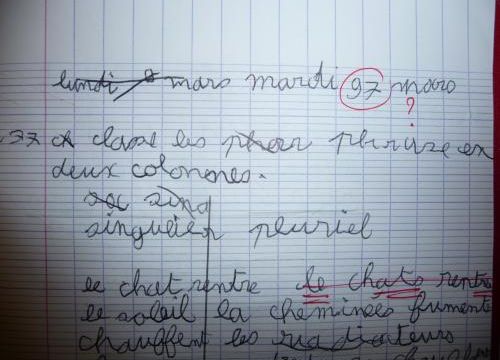 lundi 8 mars mardi 97 mars
?
37 clase les phrase en
deux colonones.
sing
singulier pluriel
le chat rentre le chats rentre
le soleil la cheminées fument
chauffent les radiateurs